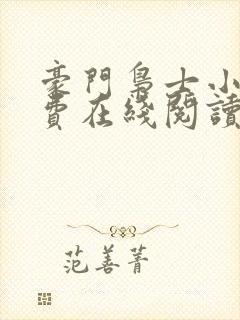 豪門梟士小
費在綫閱讀
范善菁